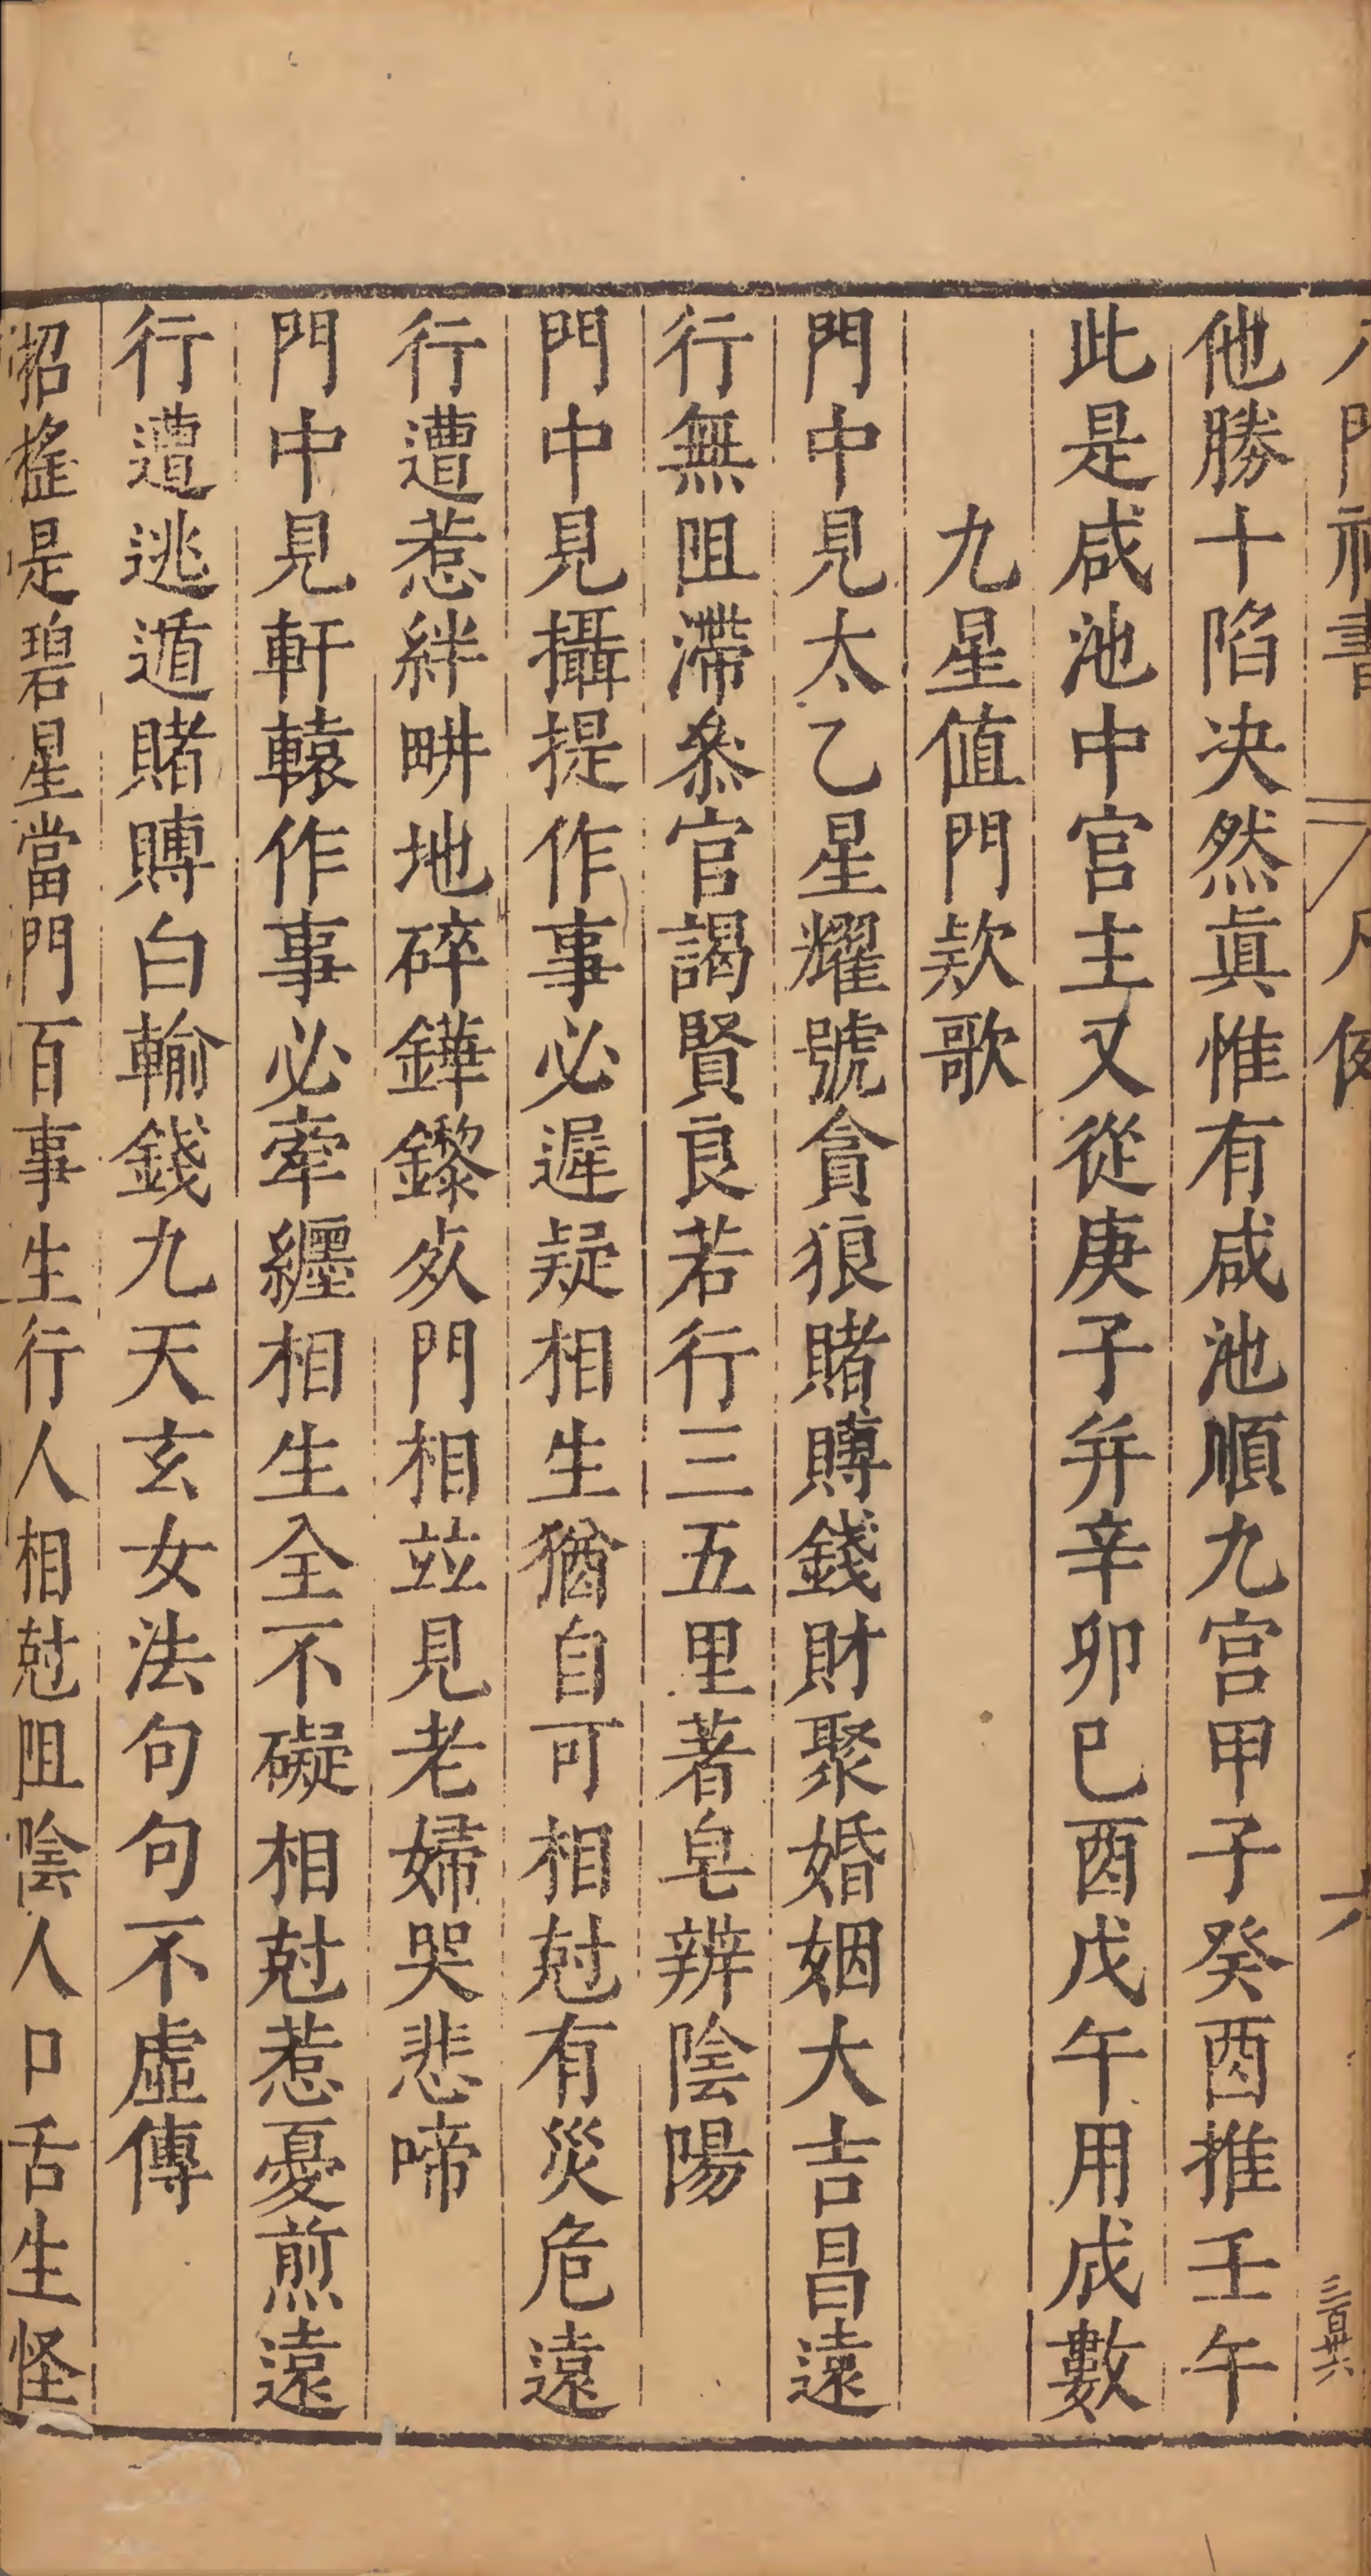 門神書 六 三百廿六
他勝十陷决然眞惟有咸池順九宫甲子癸酉推壬午
此是咸池中宫主又從庚子并辛卯巳酉戊午用成數
九星值門欵歌
門中見太乙星耀號貪狼賭賻錢財聚婚姻大吉昌遠
行無阻滯叅官謁賢良若行三五里著皂辨陰陽
門中見攝提作事必遲疑相生猶自可相尅有災危遠
行遭惹絆畊地碎鏵鑗夾門相並見老婦哭悲啼
門中見軒轅作事必牽纒相生全不礙相尅惹憂煎遠
行遭逃遁賭賻白輸錢九天玄女法句句不虛傳
招摇是碧星當門百事生行人相尅阻陰人口舌生怪